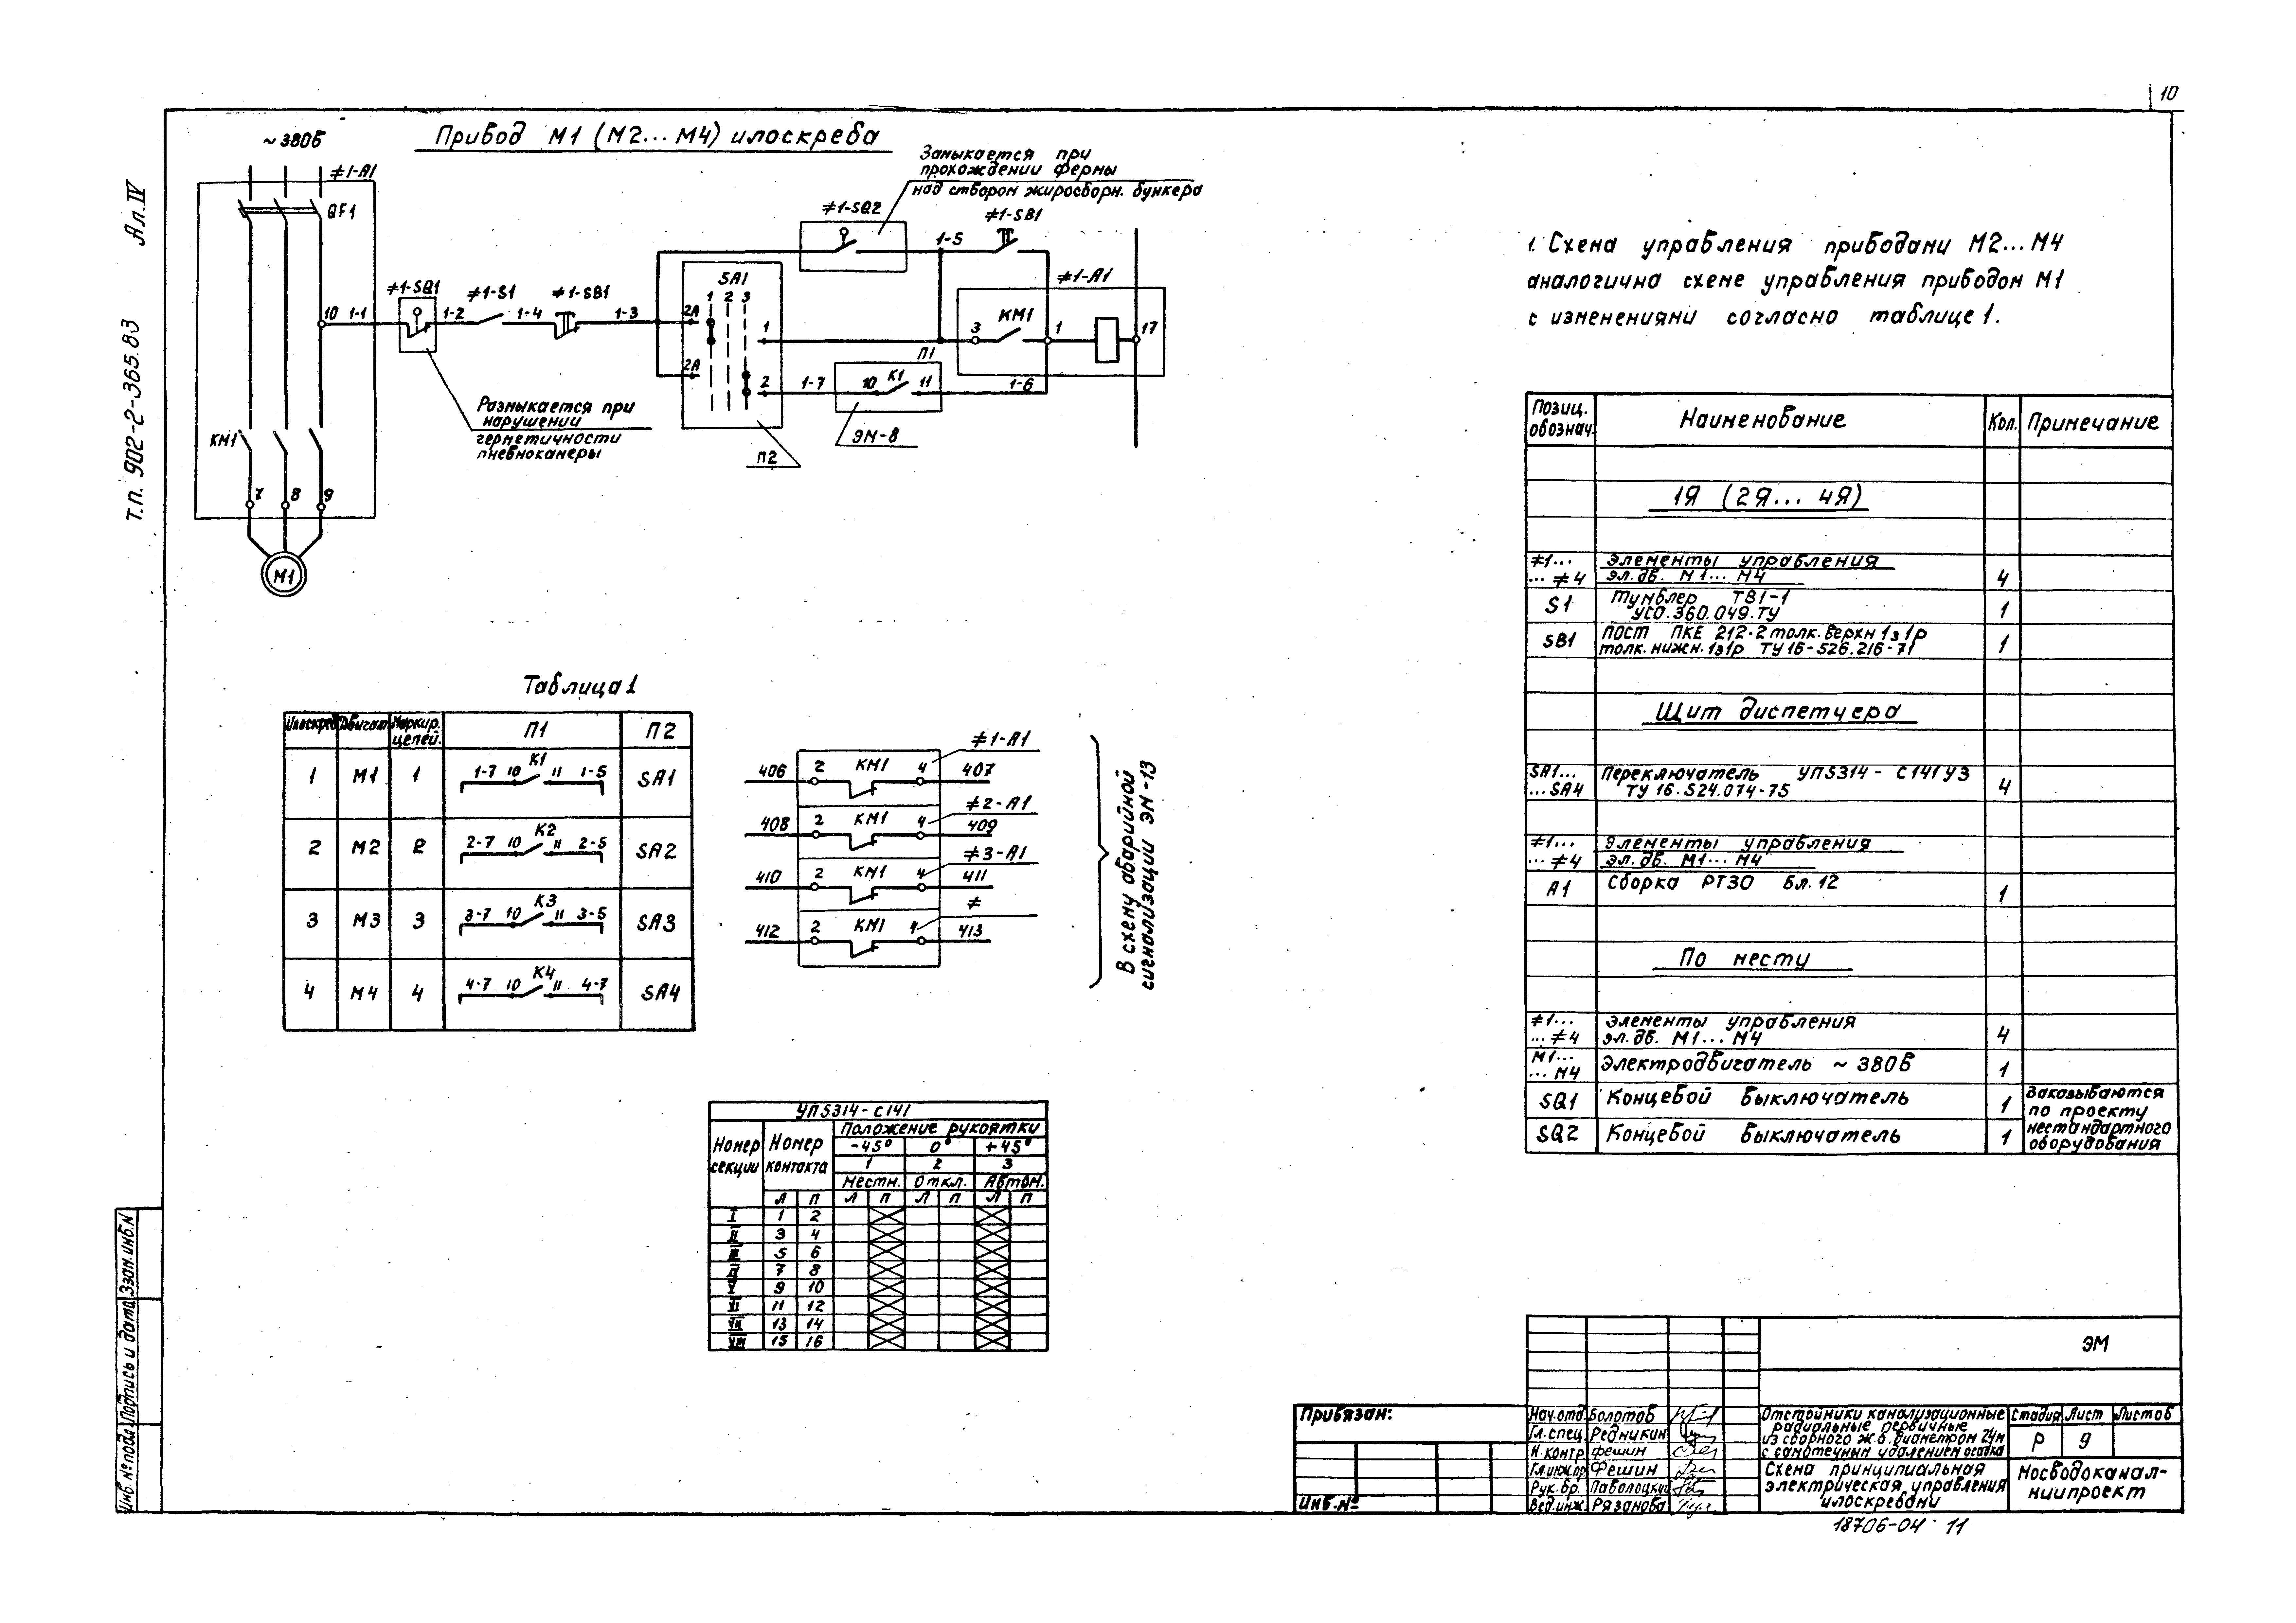 10
Ал. IV
т.п. 902-2-365.83
Привод М1 (М2... М4) илоскреба
~380В
≠1-А1
QF1
КМ1
7 8 9
М1
10 1-1
≠1-SQ1
1-2
≠1-S1
1-4
≠1-SB1
1-3
Размыкается при
нарушении
герметичности
пневмокамеры
SA1
1 2 3
2А
2А
1
2
П2
Замыкается при
прохождении фермы
над створом жиросборн. бункера
≠1-SQ2
1-5
≠1-SB1
≠1-А1
3
КМ1
1
17
П1
1-7
10 К1 11
1-6
ЭМ-8
1. Схема управления приводами М2... М4
аналогична схеме управления приводом М1
с изменениями согласно таблице 1.
Позиц. обознач. Наименование Кол. Примечание
1Я (2Я... 4Я)
≠1... ...≠4 Элементы управления эл. дв. М1... М4 4
S1 Тумблер ТВ1-1 УСО.360.049.ТУ 1
SB1 Пост ПКЕ 212-2 толк. верхн 1з1р толк. нижн. 1з1р ТУ16-526.216-71 1
Щит диспетчера
SA1... ...SA4 Переключатель УП5314-С141У3 ТУ 16.524.074-75 4
≠1... ...≠4 Элементы управления эл. дв. М1... М4
А1 Сборка РТЗО Бл. 12 1
По месту
≠1... ...≠4 Элементы управления эл. дв. М1... М4 4
М1... ...М4 Электродвигатель ~380В 1
SQ1 Концевой выключатель 1
SQ2 Концевой выключатель 1
Заказываются
по проекту
нестандартного
оборудования
Таблица 1
Илоскреб Двигат. Маркир. цепей. П1 П2
1 М1 1 1-7 10 К1 11 1-5 SA1
2 М2 2 2-7 10 К2 11 2-5 SA2
3 М3 3 3-7 10 К3 11 3-5 SA3
4 М4 4 4-7 10 К4 11 4-7 SA4
≠1-А1
406 2 КМ1 4 407
≠2-А1
408 2 КМ1 4 409
≠3-А1
410 2 КМ1 4 411
≠
412 2 КМ1 4 413
В схему аварийной
сигнализации ЭМ-13
УП5314-С141
Номер секции Номер контакта Положение рукоятки
-45° 0° +45°
1 2 3
Местн. Откл. Автом.
Л П Л П Л П Л П
I 1 2
II 3 4
III 5 6
IV 7 8
V 9 10
VI 11 12
VII 13 14
VIII 15 16
Инв. № подл. Подпись и дата Взам. инв. N
Привязан:
Инв. №
ЭМ
Нач. отд. Болотов
Гл. спец. Редникин
Н. контр Фешин
Гл. инж. пр Фешин
Рук. бр. Паволоцкий
Вед. инж. Рязанова
Отстойники канализационные
радиальные первичные
из сборного ж.б. диаметром 24м
с самотечным удалением осадка
Стадия Лист Листов
Р 9
Схема принципиальная
электрическая управления
илоскребами
Мосводоканал-
ниипроект
18706-04 11